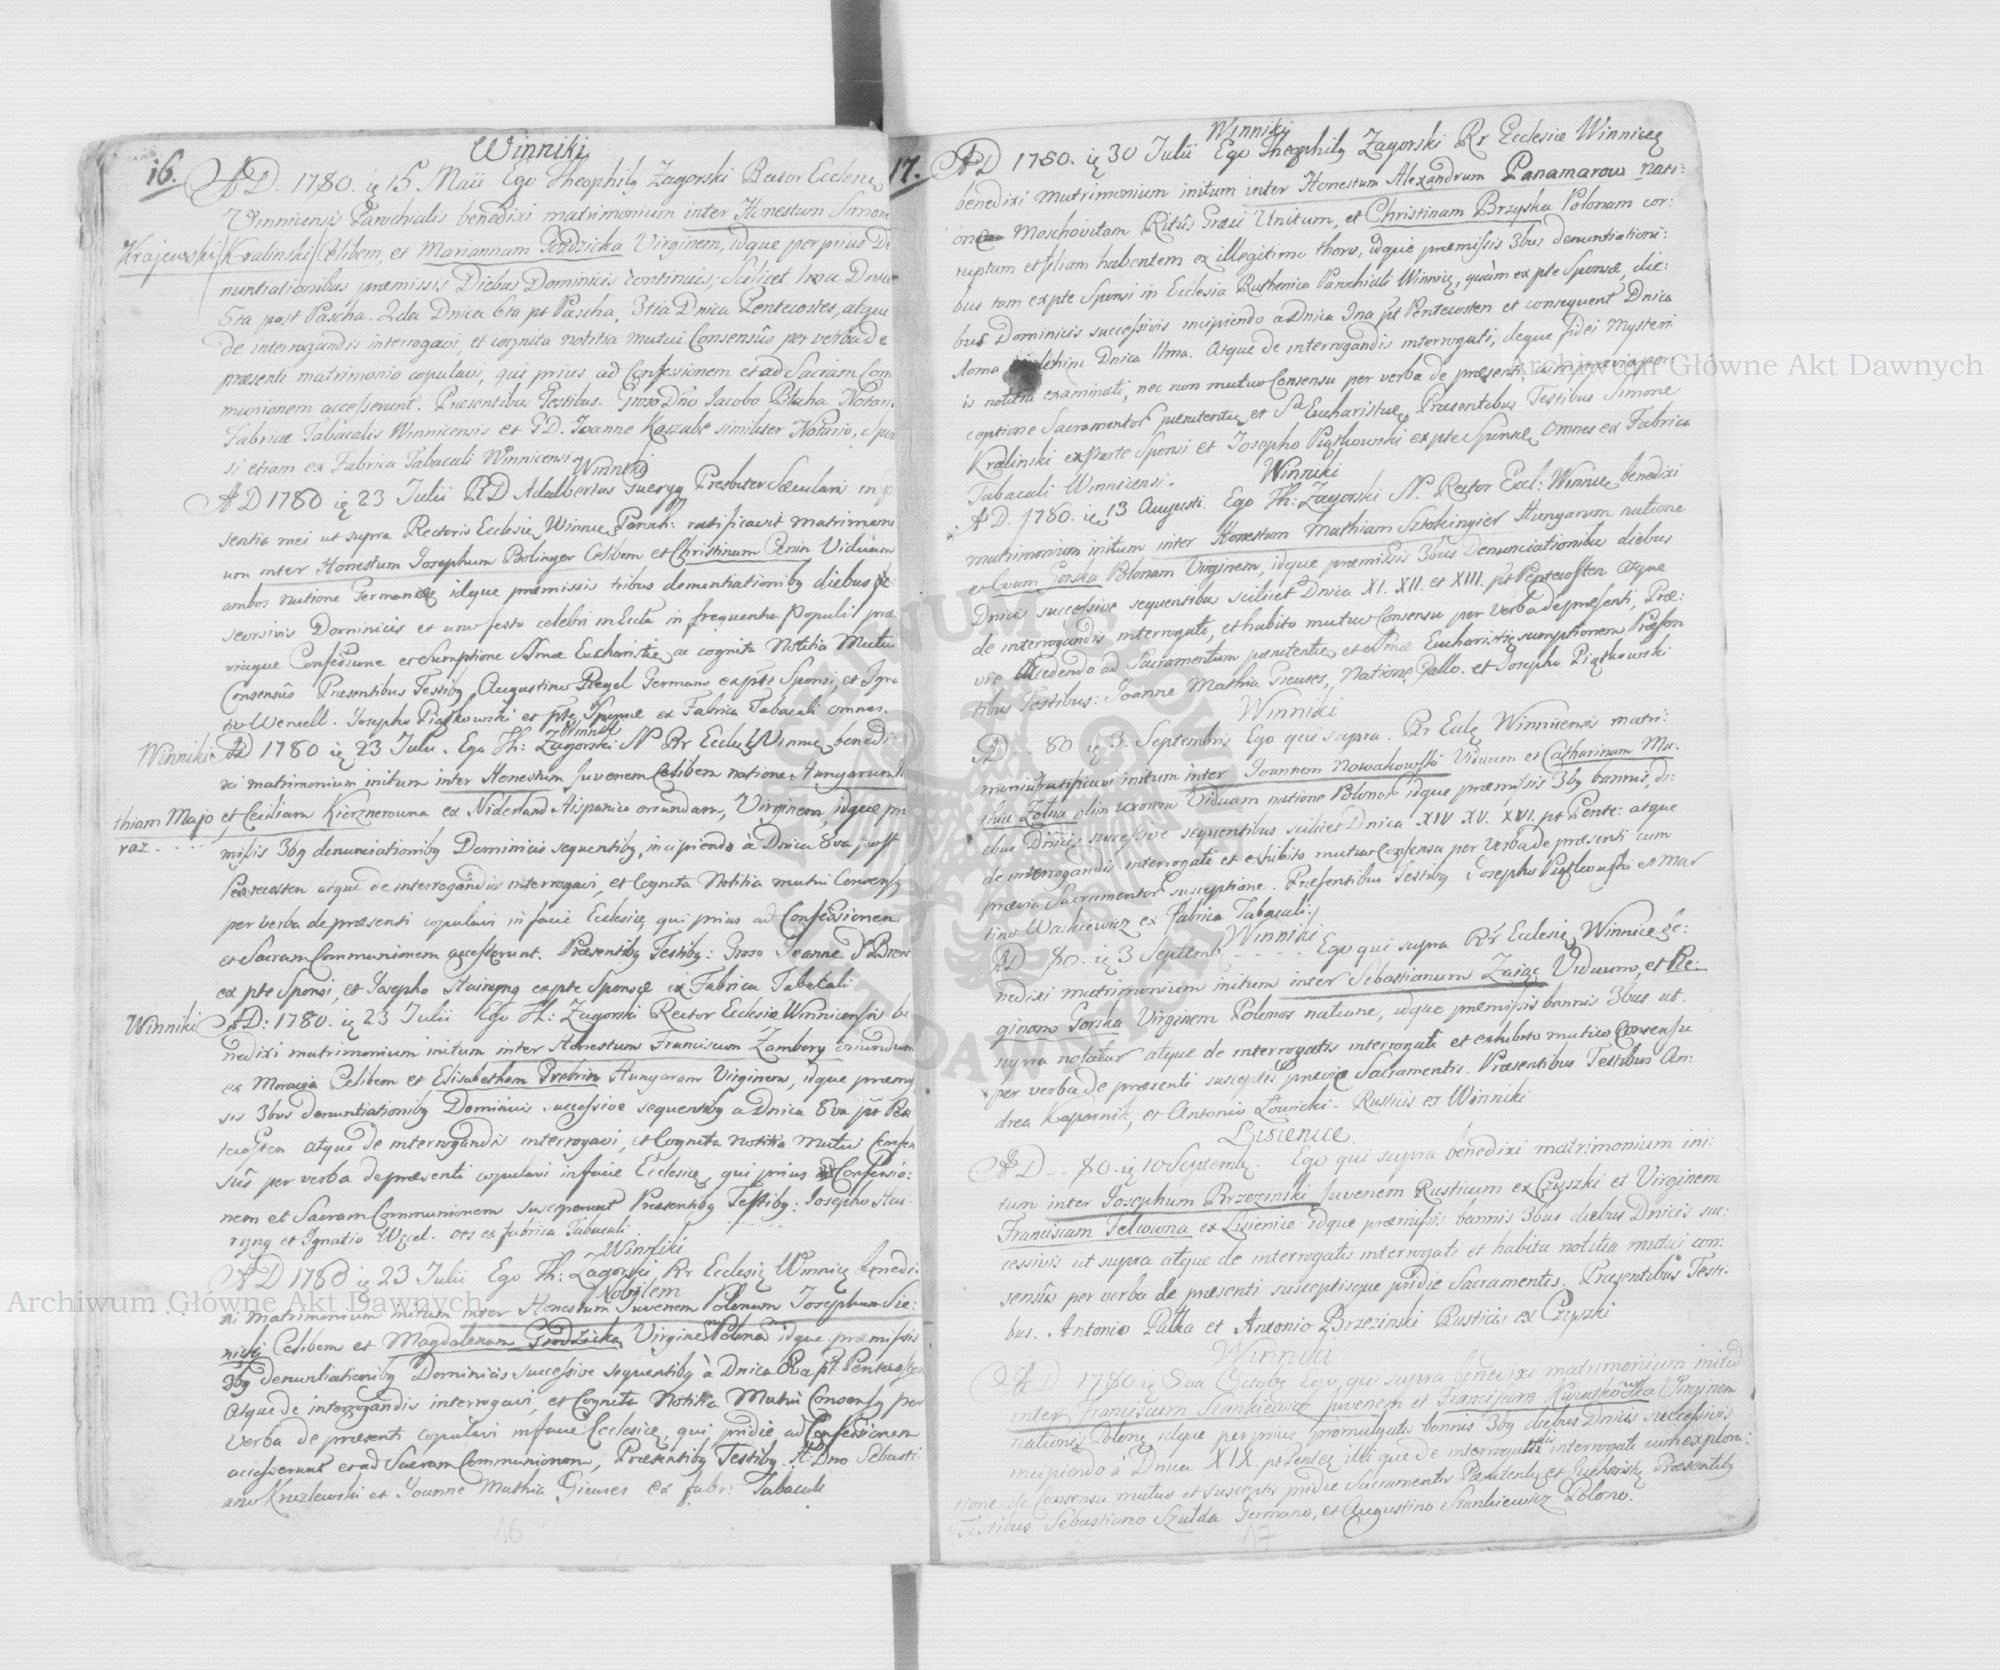 16.
Winniki
AD. 1780. ię 15 Maii Ego Theophilg Zagorski Rector Ecclesię
Winnicensis Parochialis benedixi matrimonium inter Honestum Simon
Krajewski / Kralinski / Celibem, et Mariannam Virginem, idque per prius De
nuntiationibus præmissis Diebus Dominicis continuis, Scilicet Dnica
5ta post Pascha. 2da Dnica 6ta pt Pascha, 3tia Dnica Pentecostes, atque
de interrogandis interrogavi, et cognita notitia mutui Consensûs per verba de
præsenti matrimonio copulavi, qui prius ad Confessionem et ad Sacram Com
munionem accesserunt. Præsentibus Testibus. Groso Dno Jacobo Blaha Notari
Fabricæ Tabacalis Winnicensis et GD. Joanne Kaszube similiter Notario, Spon
si etiam ex Fabrica Tabacali Winnicensi
Winniki
AD 1780 ię 23 Julii RD Adalbertus Presbiter Sæcularis in p
sentia mei ut supra Rectoris Ecclesię Winnic Paroch: ratificavit matrimoni
um inter Honestum Josephum Bolinger Celibem et Christinam Viduam
ambos natione Germanos idque præmissis tribus denuntiationibg diebus
seorsivis Dominicis et uno festo celebri in Eccla in frequentia Populi præ
viaque Confessione et Sumptione SSmæ Eucharistię ac cognita Notitia Mutui
Consensûs Præsentibus Testibg Augustino Regel Germano ex pte Sponsi, et Igna
tio Wencell. Josepho Piątkowski et pte Sponsæ ex Fabrica Tabacali omnes.
Winniki
Winniki AD 1780 ię 23 Julii. Ego Th: Zagorski N Rr Ecclię Winnic benedi
xi matrimonium initum inter Honestum Juvenem Celibem natione Hungarum
thiam Majo
raz
et Ceciliam Kierznerowna ex Niderland Hispanico oriundam, Virginem, idque præ
missis 3bg denunciationibg Dominicis sequentibg, incipiendo à Dnica 8va post
Pentecosten atque de interrogandis interrogavi, et Cognita Notitia mutui Consensg
per verba de præsenti copulavi in facie Ecclesię, qui prius ad Confessionem
et Sacram Communionem accesserunt. Præsentibg Testibg: Groso Joanne
ex pte Sponsi, et Josepho ex pte Sponsæ ex Fabrica Tabacali
Winniki AD: 1780. ię 23 Julii Ego Th: Zagorski Rector Ecclesiæ Winnicensis be
nedixi matrimonium initum inter Honestum Franciscum Zambory oriundum
ex Moravia Celibem et Elisabetham Hungaram Virginem, idque præmis
sis 3bus denuntiationibg Dominicis successive sequentibg a Dnica 8va pt Pen
tecosten atque de interrogandis interrogavi, et Cognita notitia Mutui Consen
sûs per verba de præsenti copulavi in facie Ecclesię, qui prius ad Confessio:
nem et Sacram Communionem susceperunt Præsentibg Testibg: Josepho
et Ignatio oes ex fabrica Tabacali
Winniki
AD 1780 ię 23 Julii Ego Th: Zagorski Rr Ecclesię Winnicę benedi:
Nobilem
xi Matrimonium initum inter Honestum Juvenem Polonum Josephum Sie:
nicki Celibem et Magdalenam Grodzicka Virginē Polonā idque præmissis
3bg denuntiationibg Dominicis successive sequentibg à Dnica 8va pt Pentecosten
Atque de interrogandis interrogavi, et Cognita Notitia Mutui Consensg per
verba de præsenti copulavi in facie Ecclesię, qui pridie ad Confessionem
accesserunt et ad Sacram Communionem, Præsentibg Testibg. Dno Sebasti
ano Kruzlewski et Joanne Mathia Gieuses ex fabr: Tabacali
16
17.
Winniki
AD 1780. ię 30 Julii Ego Theophilg Zagorski Rr Ecclesiæ Winnicę
benedixi matrimonium initum inter Honestum Alexandrum Panamarow nati:
one Moschovitam Ritûs Græci Unitum, et Christinam Brzyska Polonam cor:
ruptam et filiam habentem ex illegitimo thoro, idque præmissis 3bus denuntiationi:
bus tam ex pte Sponsi in Ecclesia Ruthenica Parochiali Winnicę, quàm ex pte Sponsæ, die:
bus Dominicis successivis incipiendo a Dnica pt Pentecosten et consequent Dnica
Dnica 11ma. Atque de interrogandis interrogati, deque fidei Mysteri
is notitia examinati, nec non mutuo Consensu per verba de præsenti, cum prævia per
ceptione Sacramentor pænitentię et SSæ Eucharistiæ, Præsentibus Testibus Simone
Kralinski ex parte Sponsi et Josepho Piątkowski ex pte Sponsæ, omnes ex Fabrica
Tabacali Winnicensi.
Winniki
AD. 1780. ię 13 Augusti. Ego Th: Zagorski N. Rector Eccl: Winnic benedixi
matrimonium initum inter Honestum Mathiam Sztokingier Hungarum natione
et Evam Gorska Polonam Virginem, idque præmissis 3bus Denunciationibus diebus
Dnicis successive sequentibus scilicet Dnica XI. XII. et XIII. pt Pentecosten atque
de interrogandis interrogati, et habito mutuo Consensu per verba de præsenti, Præ:
vie accedendo ad Sacramentum pænitentię et SSmæ Eucharistię sumptionem Præsen
tibus Testibus: Joanne Mathia Gieuses, Natione Gallo. et Josepho Piątkowski
Winniki
AD. 80 ię 3. Septembris Ego qui supra. Rr Eccle Winnicensis matri:
monium initum inter Joannem Nowakowski Viduum et Catharinam Ma:
olim uxorem Viduam natione Polonos idque præmissis 3bg bannis, di:
ebus Dnicis successive sequentibus scilicet Dnica XIV XV. XVI. pt Pente: atque
de interrogandis interrogati et exhibito mutuo Consensu per verba de præsenti cum
prævia Sacramentor susceptione. Præsentibus Testibg Josepho Piątkowski et Mar
tino Waskiewicz ex fabrica Tabacali
Winniki
AD 80. ię 3 Septemb. Ego qui supra Rr Ecclesię Winnicę be:
nedixi matrimonium initum inter Sebastianum Zaiąc Viduum, et Re:
ginam Gorska Virginem Polonos natione, idque præmissis bannis 3bus ut.
supra notatur atque de interrogatis interrogati et exhibito mutuo Consensu
per verba de præsenti susceptis prævie Sacramentis. Præsentibus Testibus An:
drea Kaparnik, et Antonio Łowicki. Rusticis ex Winniki
Lisienice.
AD 80. ię 10 Septemg. Ego qui supra benedixi matrimonium ini:
tum inter Josephum Brzezinski Juvenem Rusticum ex Czyszki et Virginem
Franciscam Felowna ex Lisienice idque præmissis bannis 3bus diebus Dnicis suc:
cessivis ut supra atque de interrogatis interrogati et habita notitia mutui con:
sensûs per verba de præsenti susceptisque pridie Sacramentis. Præsentibus Testi:
bus. Antonio Palka et Antonio Brzezinski Rusticis ex Czyszki
Winniki
AD 1780 ię 8va Octobr Ego qui supra benedixi matrimonium initum
inter Franciscum Stankiewicz juvenem et Franciscam Virginem
nationis Polonę idque per prius promulgatis bannis 3bg diebus Dnicis successivis
incipiendo à Dnica XIX. pt Pentec illique de interrogandis interrogati cum explora:
tione de Consensu mutuo et susceptis pridie Sacramentis Pænitentię et Eucharistię Præsentibg
Testibus Sebastiano Szulda Germano, et Augustino Stankiewicz Polono.
17
Archiwum Główne Akt Dawnych
Archiwum Główne Akt Dawnych
ARCHIWUM GŁÓWNE AKT DAWNYCH